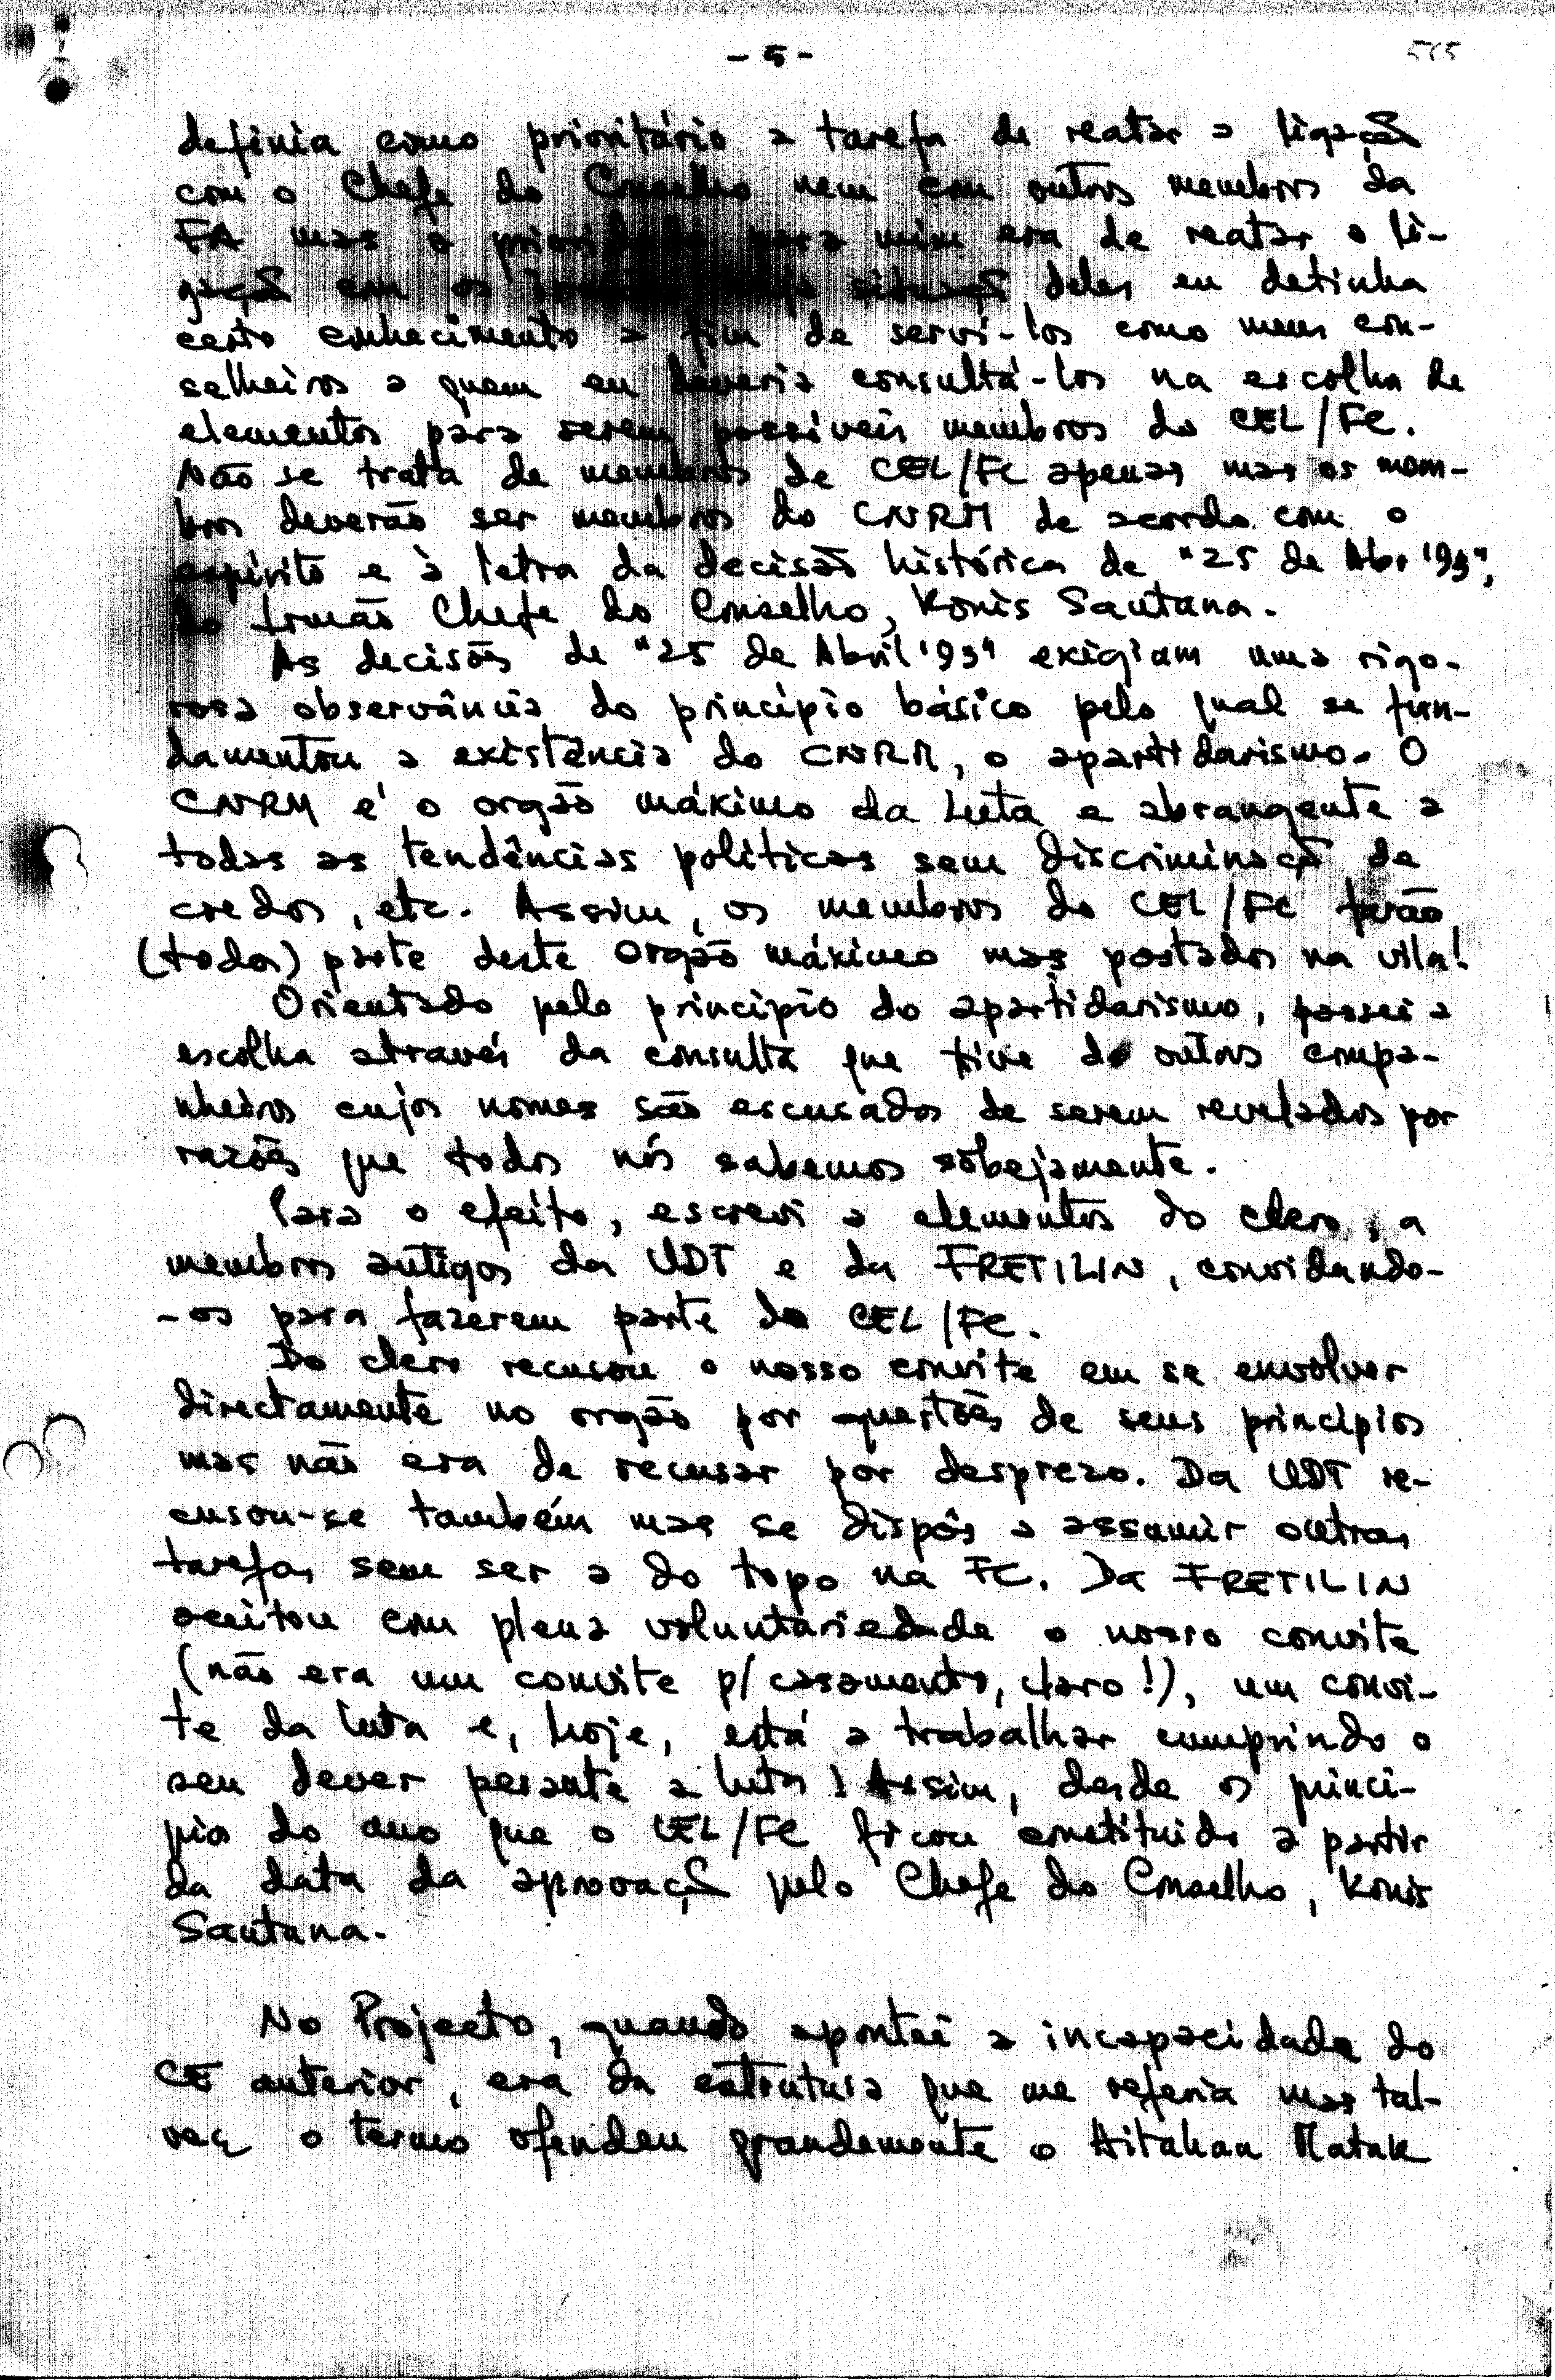 - 5 -
definia como prioritário a tarefa de reatar a ligação
com o Chefe do Conselho nem com outros membros da
FA mas a prioridade para mim era de reatar a li-
gação com os cuja situação deles eu detinha
certo conhecimento a fim de serví-los como meus con-
selheiros a quem eu deveria consultá-los na escolha de
elementos para serem possíveis membros do CEL/FC.
Não se trata de membros de CEL/FC apenas mas os mem-
bros deverão ser membros do CNRM de acordo com o
espírito e à letra da decisão histórica de "25 de Abr '93",
do Irmão Chefe do Conselho, Konis Santana.
As decisões de "25 de Abril '93" exigiam uma rigo-
rosa observância do princípio básico pelo qual se fun-
damentou a existência do CNRM, o apartidarismo. O
CNRM é o orgão máximo da Luta e abrangente a
todas as tendências políticas sem discriminação de
credos, etc. Assim, os membros do CEL/FC farão
(todos) parte deste Orgão máximo mas postados na vila!
Orientado pelo princípio do apartidarismo, passei a
escolha através da consulta que tive de outros compa-
nheiros cujos nomes são escusados de serem revelados por
razões que todos nós sabemos sobejamente.
Para o efeito, escrevi a elementos do clero, a
membros antigos da UDT e da FRETILIN, convidando-
-os para fazerem parte do CEL/FC.
Do clero recusou o nosso convite em se envolver
directamente no orgão por questões de seus princípios
mas não era de recusar por desprezo. Da UDT re-
cusou-se também mas se dispôs a assumir outras
tarefas sem ser a do topo na FC. Da FRETILIN
aceitou com plena voluntariedade o nosso convite
(não era um convite p/ casamento, claro!), um convi-
te da luta e, hoje, está a trabalhar cumprindo o
seu dever perante a luta! Assim, desde os princí-
pios do ano que o CEL/FC ficou constituido a partir
da data da aprovação pelo Chefe do Conselho, Konis
Santana.
No Projecto, quando apontei a incapacidade do
CE anterior, era da estrutura que me referia mas tal-
vez o termo ofendeu grandemente o Aitahan Matak